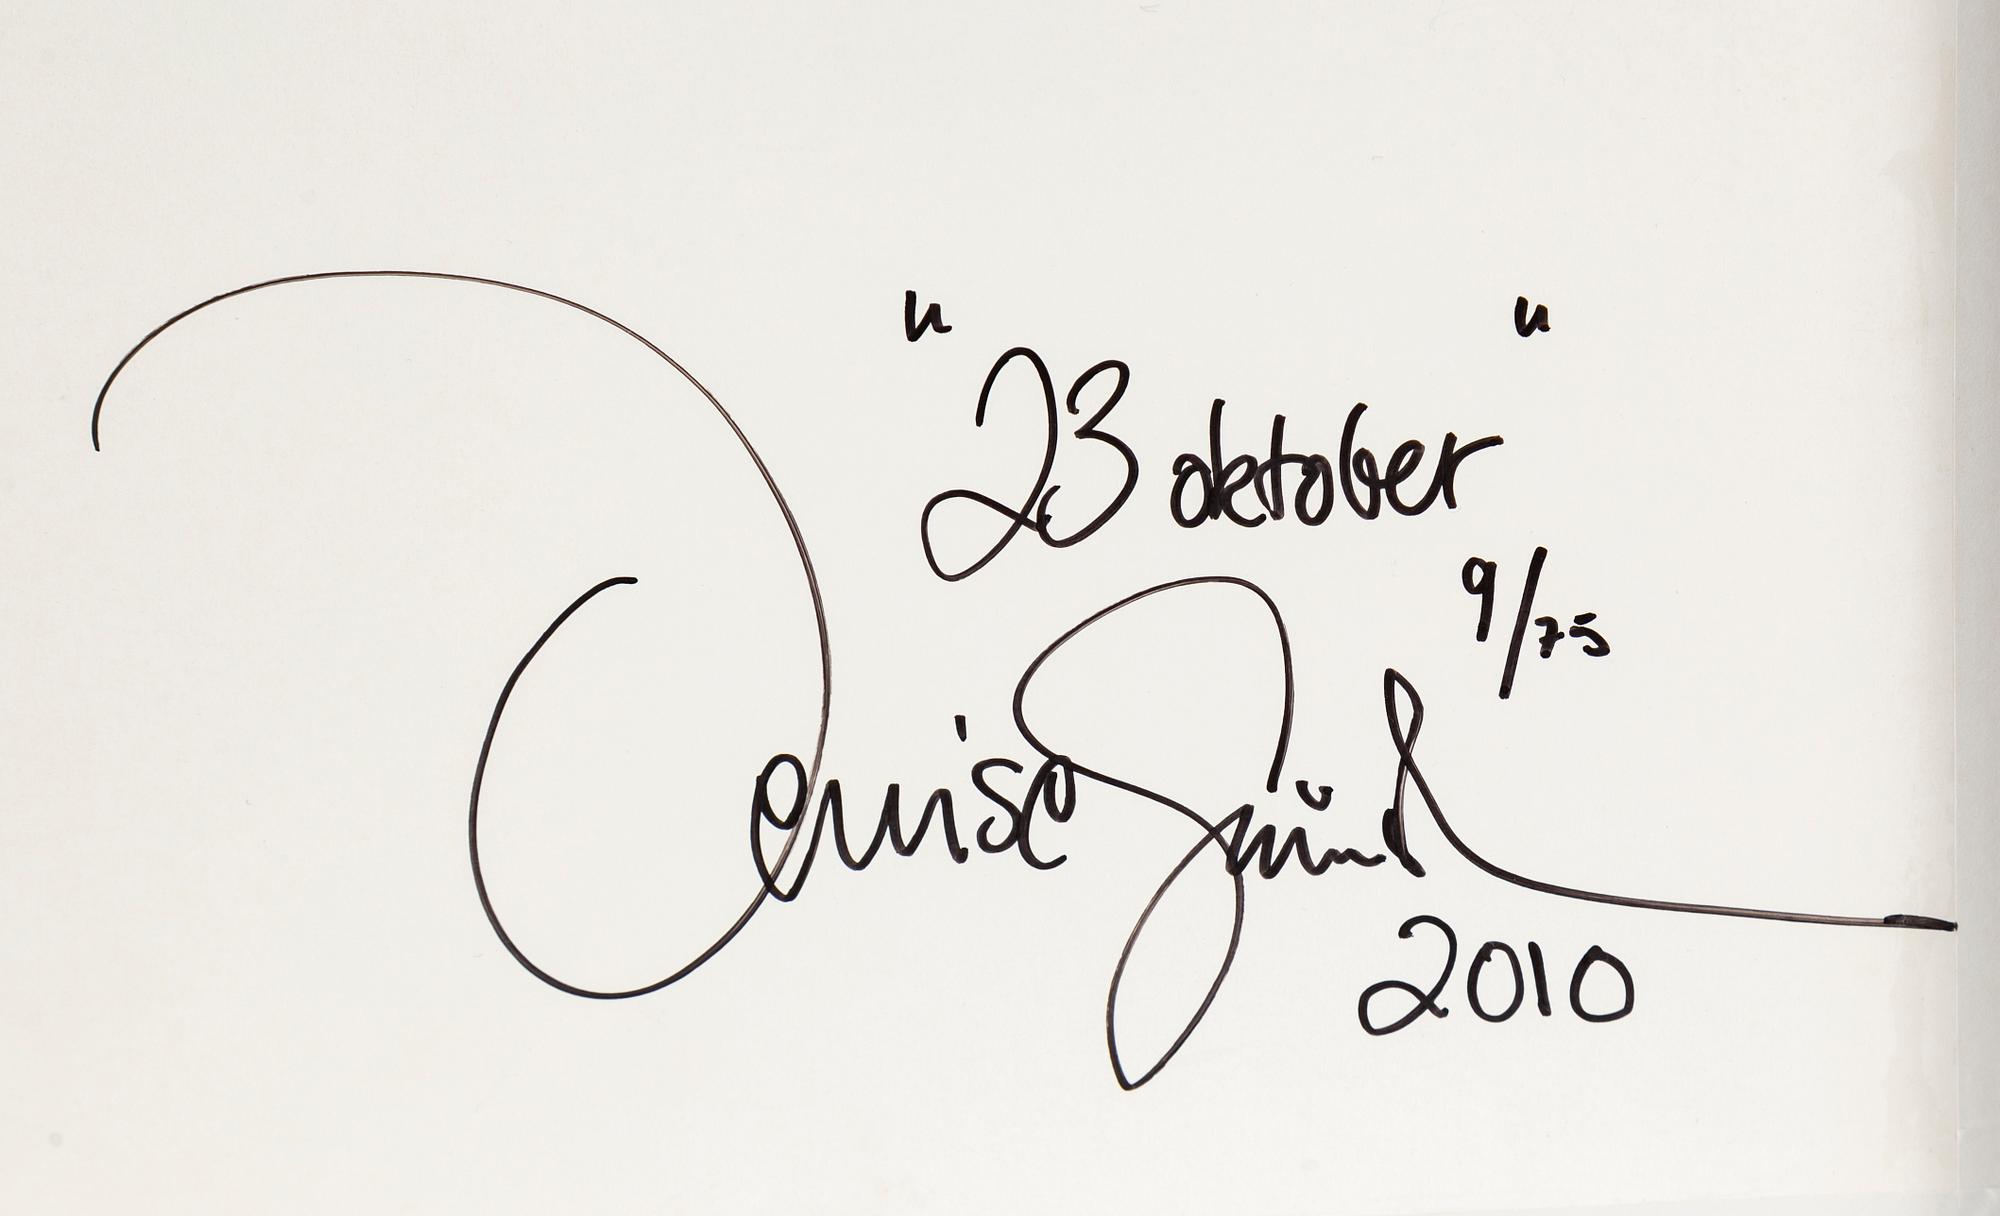 "23 oktober"
9/75
Denise Grünst
2010